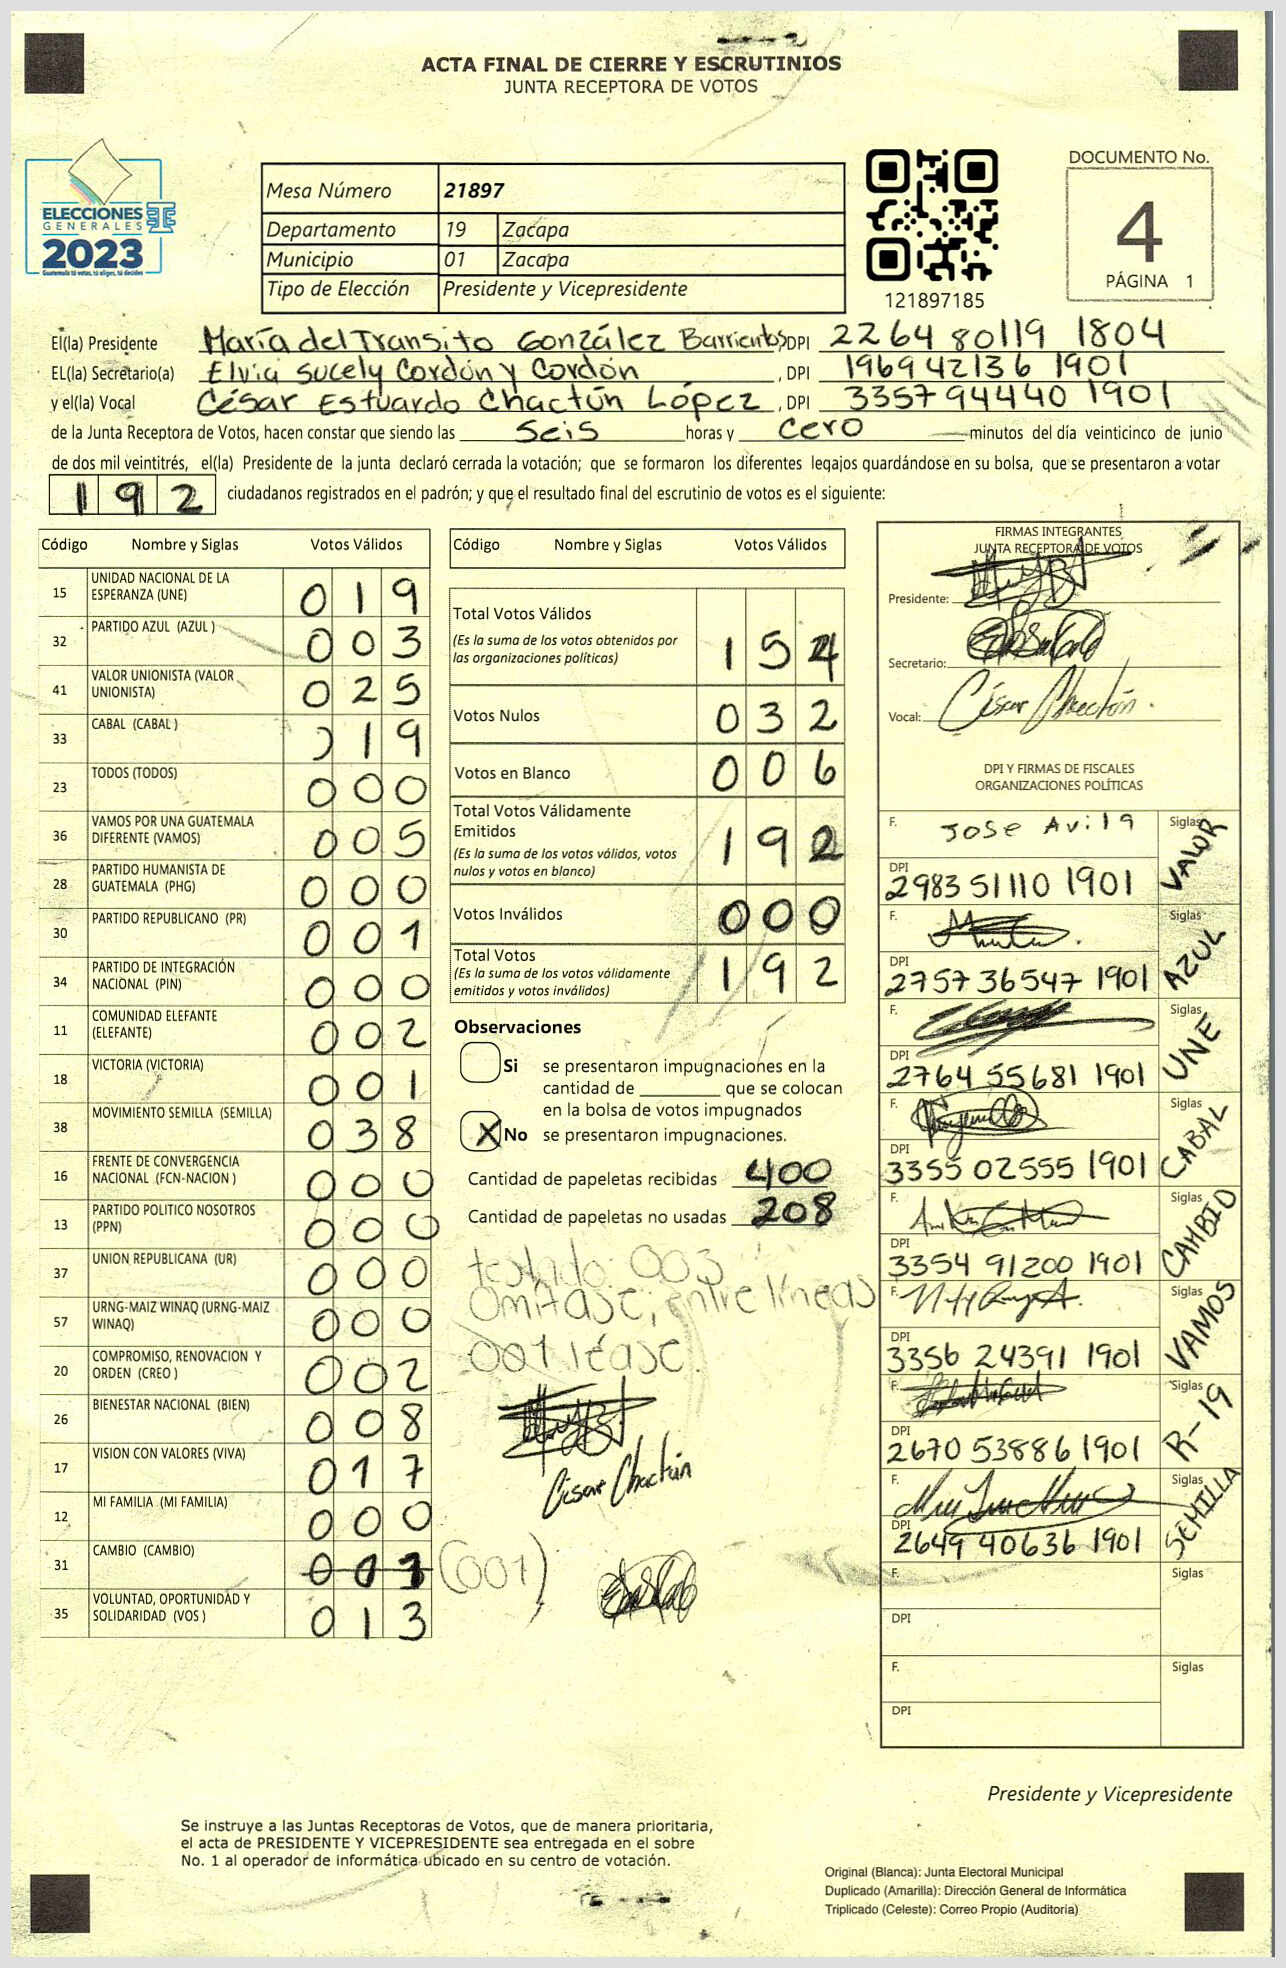 ACTA FINAL DE CIERRE Y ESCRUTINIOS
JUNTA RECEPTORA DE VOTOS
ELECCIONES
GENERALES
2023
Guatemala tú votas, tú eliges, tú decides
Mesa Número 21897
Departamento 19 Zacapa
Municipio 01 Zacapa
Tipo de Elección Presidente y Vicepresidente
121897185
DOCUMENTO No.
4
PÁGINA 1
El(la) Presidente María del Transito González Barrientos, DPI 2264 80119 1804
EL(la) Secretario(a) Elvia Sucely Cordón y Cordón, DPI 1969 42136 1901
y el(la) Vocal César Estuardo Chactún López, DPI 3357 94440 1901
de la Junta Receptora de Votos, hacen constar que siendo las Seis horas y Cero minutos del día veinticinco de junio
de dos mil veintitrés, el(la) Presidente de la junta declaró cerrada la votación; que se formaron los diferentes legajos guardándose en su bolsa, que se presentaron a votar
192 ciudadanos registrados en el padrón; y que el resultado final del escrutinio de votos es el siguiente:
Código Nombre y Siglas Votos Válidos
15 UNIDAD NACIONAL DE LA ESPERANZA (UNE) 019
32 PARTIDO AZUL (AZUL ) 003
41 VALOR UNIONISTA (VALOR UNIONISTA) 025
33 CABAL (CABAL ) 019
23 TODOS (TODOS) 000
36 VAMOS POR UNA GUATEMALA DIFERENTE (VAMOS) 005
28 PARTIDO HUMANISTA DE GUATEMALA (PHG) 000
30 PARTIDO REPUBLICANO (PR) 001
34 PARTIDO DE INTEGRACIÓN NACIONAL (PIN) 000
11 COMUNIDAD ELEFANTE (ELEFANTE) 002
18 VICTORIA (VICTORIA) 001
38 MOVIMIENTO SEMILLA (SEMILLA) 038
16 FRENTE DE CONVERGENCIA NACIONAL (FCN-NACION ) 000
13 PARTIDO POLITICO NOSOTROS (PPN) 000
37 UNION REPUBLICANA (UR) 000
57 URNG-MAIZ WINAQ (URNG-MAIZ WINAQ) 000
20 COMPROMISO, RENOVACION Y ORDEN (CREO ) 002
26 BIENESTAR NACIONAL (BIEN) 008
17 VISION CON VALORES (VIVA) 017
12 MI FAMILIA (MI FAMILIA) 000
31 CAMBIO (CAMBIO) (001)
35 VOLUNTAD, OPORTUNIDAD Y SOLIDARIDAD (VOS ) 013
Código Nombre y Siglas Votos Válidos
Total Votos Válidos 154
(Es la suma de los votos obtenidos por
las organizaciones políticas)
Votos Nulos 032
Votos en Blanco 006
Total Votos Válidamente
Emitidos 192
(Es la suma de los votos válidos, votos
nulos y votos en blanco)
Votos Inválidos 000
Total Votos 192
(Es la suma de los votos válidamente
emitidos y votos inválidos)
Observaciones
Si se presentaron impugnaciones en la
cantidad de ________ que se colocan
en la bolsa de votos impugnados
X No se presentaron impugnaciones.
Cantidad de papeletas recibidas 400
Cantidad de papeletas no usadas 208
testado: 003
omitase; entre líneas
001 léase
César Chactún
FIRMAS INTEGRANTES
JUNTA RECEPTORA DE VOTOS
Presidente:
Secretario:
Vocal: César Chactún.
DPI Y FIRMAS DE FISCALES
ORGANIZACIONES POLÍTICAS
F. Jose Avila Siglas VALOR
DPI 2983 51110 1901
F. Siglas AZUL
DPI 2757 36547 1901
F. Siglas UNE
DPI 2764 55681 1901
F. Siglas CABAL
DPI 3355 02555 1901
F. Siglas CAMBIO
DPI 3354 91200 1901
F. Siglas VAMOS
DPI 3356 24391 1901
F. Siglas R-19
DPI 2670 53886 1901
F. Siglas SEMILLA
DPI 2649 40636 1901
F. Siglas
DPI
F. Siglas
DPI
Presidente y Vicepresidente
Se instruye a las Juntas Receptoras de Votos, que de manera prioritaria,
el acta de PRESIDENTE Y VICEPRESIDENTE sea entregada en el sobre
No. 1 al operador de informática ubicado en su centro de votación.
Original (Blanca): Junta Electoral Municipal
Duplicado (Amarilla): Dirección General de Informática
Triplicado (Celeste): Correo Propio (Auditoria)